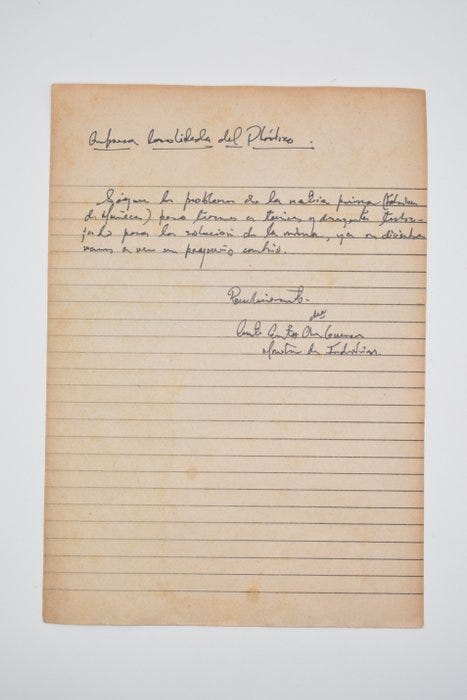 Empresa Consolidada del Plástico.
Siguen los problemas de la materia prima (Fábrica
de Muñecas) pero tenemos a técnicos y
para la solución de la misma, ya en diciembre
vamos a ver un pequeño cambio.
Revolucionariamente.
Cmdte Ernesto Che Guevara
Ministro de Industrias.